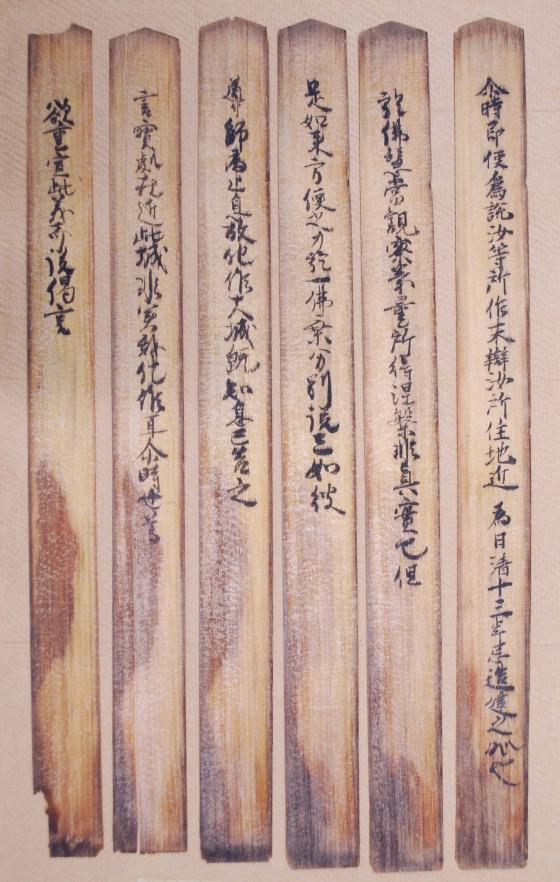 尒時即便爲説汝等所作未辦汝所住地近 為日清十三年忌造建之処也
於佛慧當観察籌量所得涅槃非真實也但
是如来方便之力於一佛乗分別説三如彼
導師為止息故化作大城既知息已告之
言寶處在近此城非实我化作耳尒時世尊
欲重宣此義而説偈言